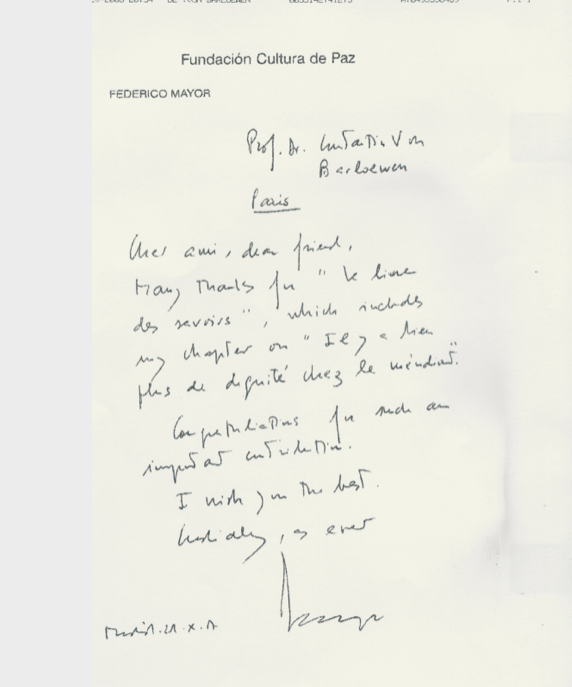 Fundación Cultura de Paz
FEDERICO MAYOR
Prof. Dr. Constantin Von
Barloewen
Paris
Cher ami, dear friend,
Many Thanks for "Le livre
des savoirs", which includes
my chapter on "Il y a bien
plus de dignité chez le mendiant".
Congratulations for such an
important contribution.
I wish you the best.
Cordially, as ever
Madrid